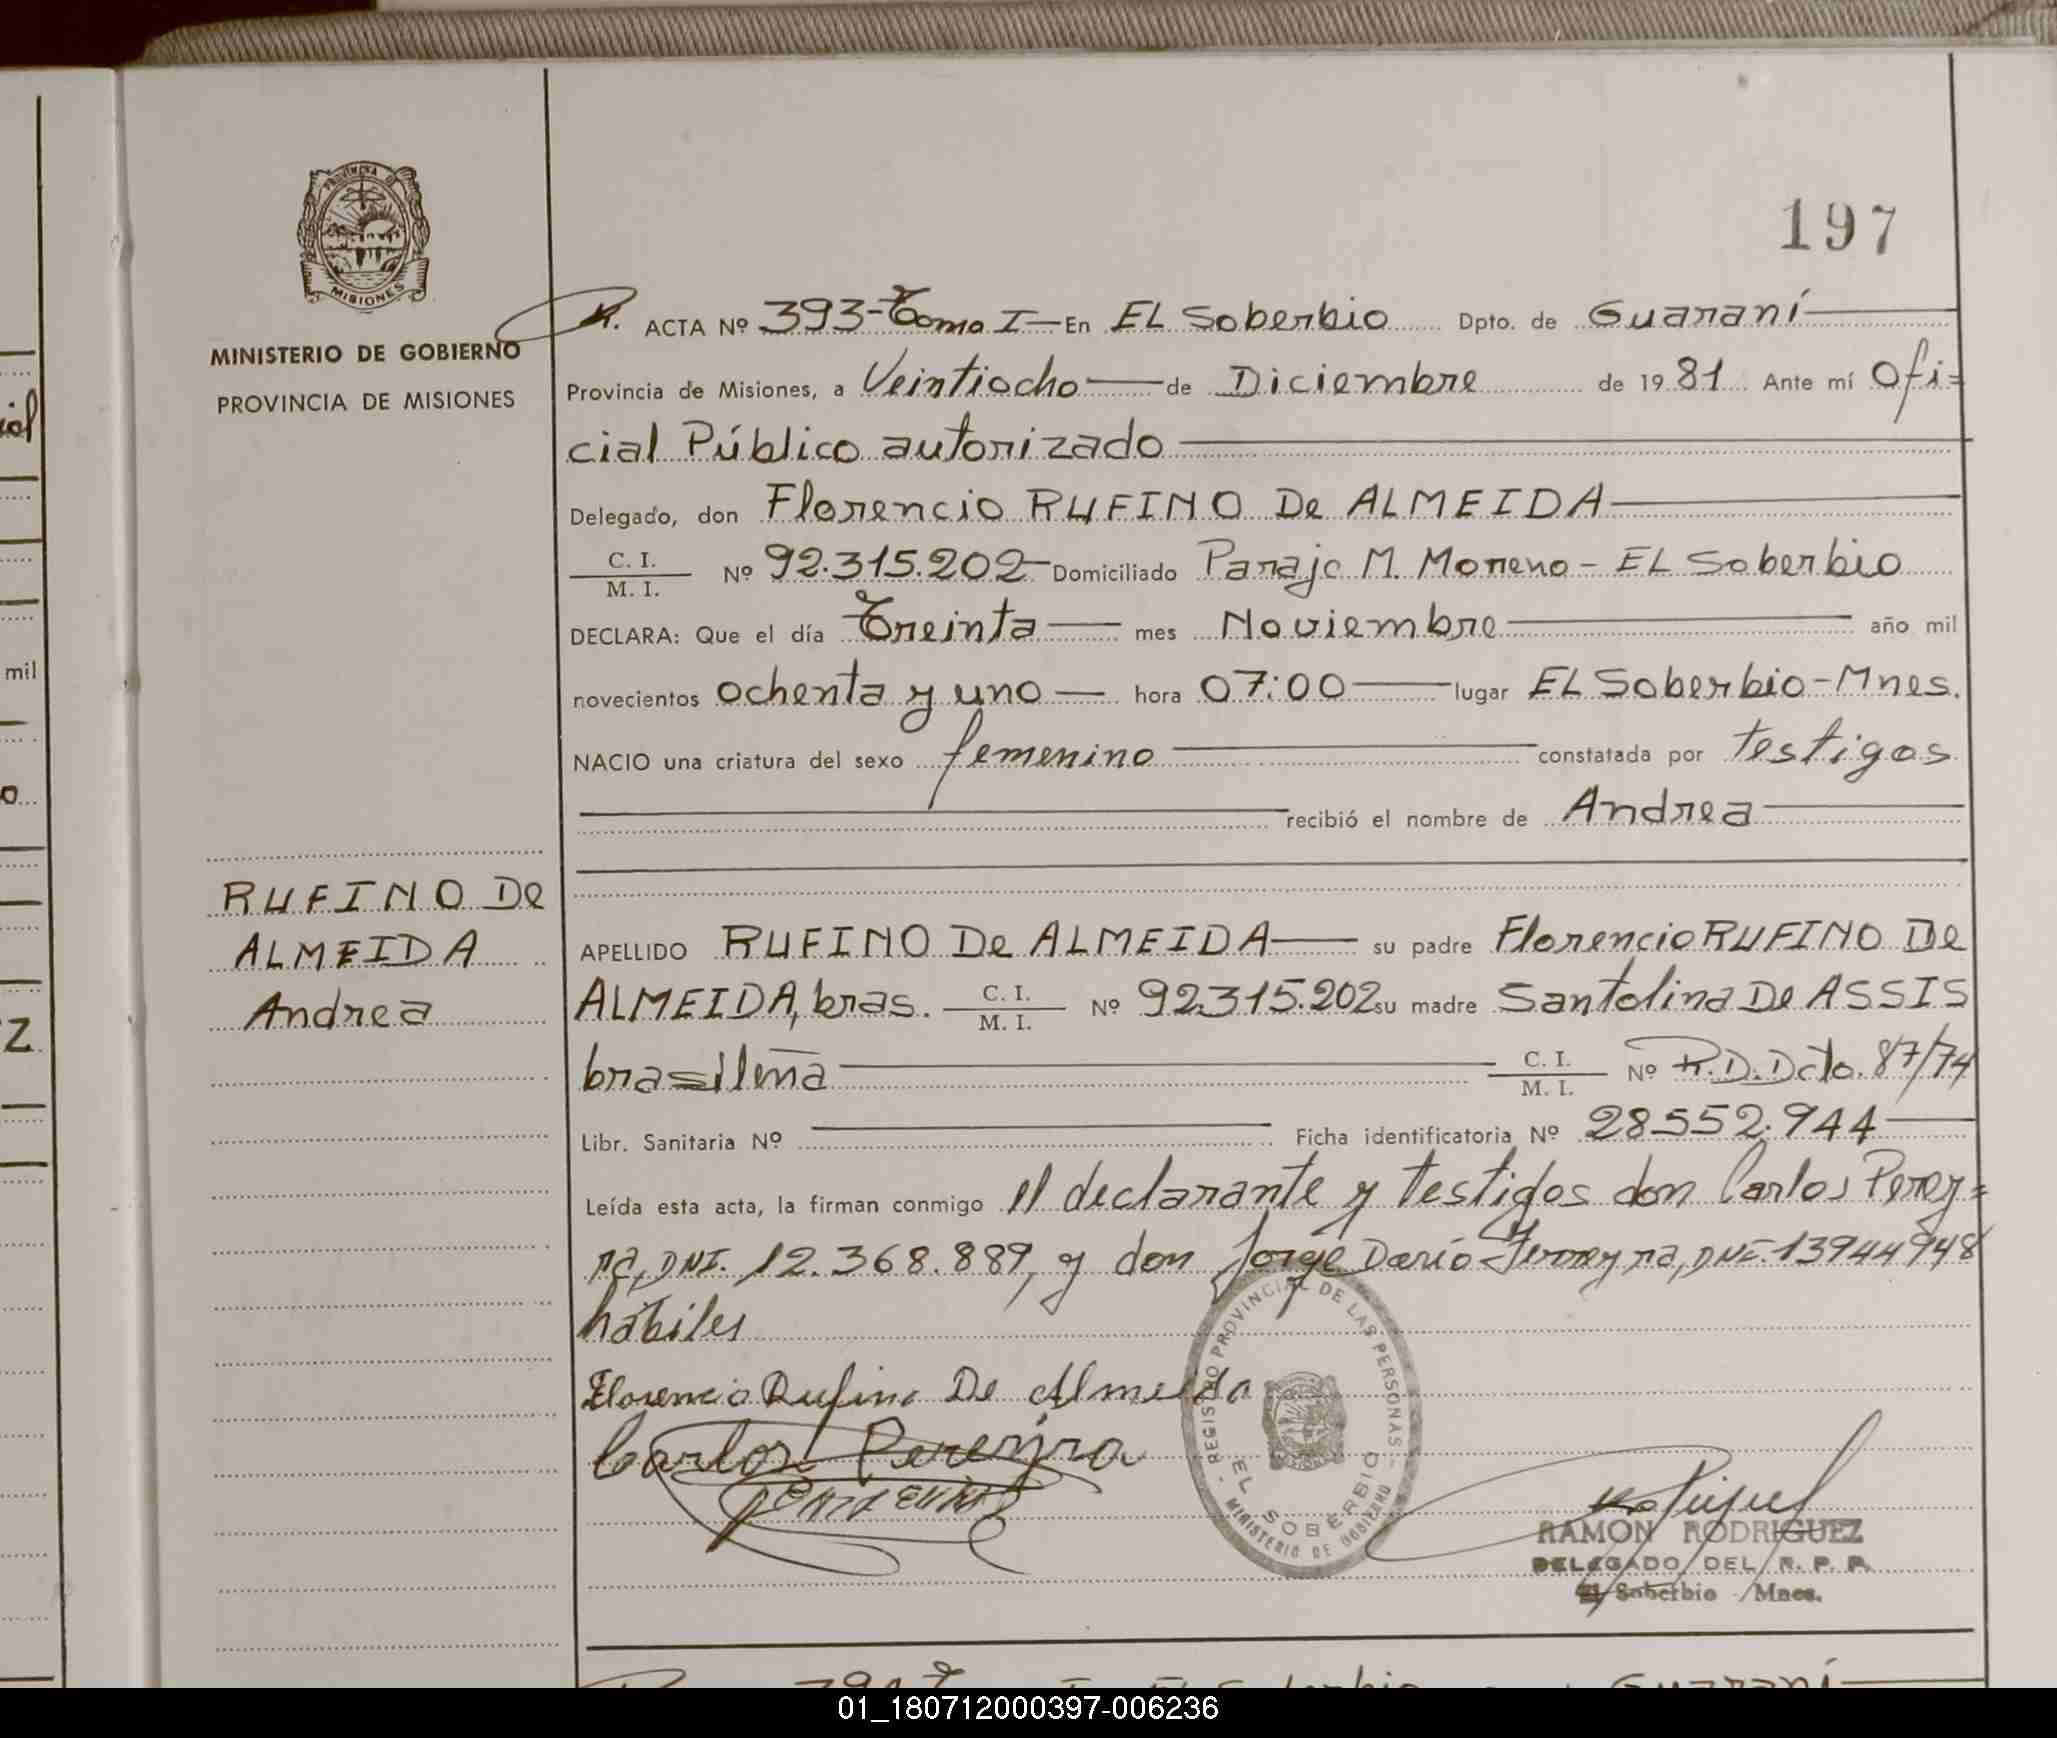 197
PROVINCIA D
MISIONES
MINISTERIO DE GOBIERNO
PROVINCIA DE MISIONES
R. ACTA Nº 393-Tomo I — En EL Soberbio Dpto. de Guaraní
Provincia de Misiones, a Veintiocho — de Diciembre de 1981 Ante mí Ofi=
cial Público autorizado
Delegado, don Florencio RUFINO De ALMEIDA
C. I. / M. I. Nº 92.315.202 Domiciliado Paraje M. Moreno - EL Soberbio
DECLARA: Que el día Treinta — mes Noviembre año mil
novecientos ochenta y uno — hora 07:00 — lugar EL Soberbio - Mnes.
NACIO una criatura del sexo femenino constatada por testigos
recibió el nombre de Andrea
RUFINO De
ALMEIDA
Andrea
APELLIDO RUFINO De ALMEIDA — su padre Florencio RUFINO De
ALMEIDA, bras. C. I. / M. I. Nº 92.315.202 su madre Santolina De ASSIS
brasileña C. I. / M. I. Nº R.D. Dcto. 87/74
Libr. Sanitaria Nº Ficha identificatoria Nº 28.552.944
Leída esta acta, la firman conmigo el declarante y testigos don Carlos Perey=
ra, DNI. 12.368.889, y don Jorge Darío Ferreyra, DNI. 13944948
hábiles
Florencio Rufino De Almeida
Carlos Pereyra
REGISTRO PROVINCIAL DE LAS PERSONAS
EL SOBERBIO
MINISTERIO DE GOBIERNO
RAMON RODRIGUEZ
DELEGADO DEL R. P. P.
El Soberbio Mnes.
mil
01_180712000397-006236